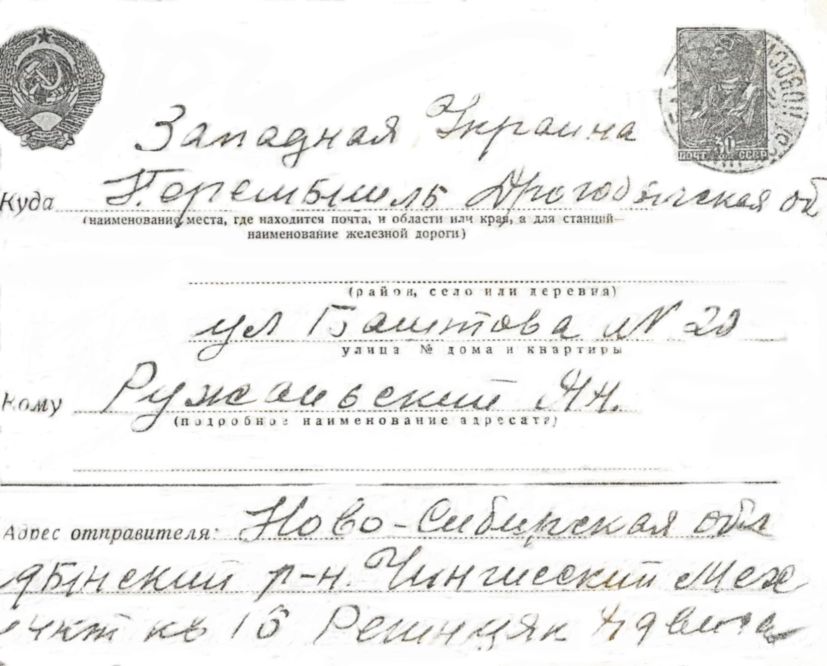 Западная Украина
Куда Перемышль Дрогобычская об
(наименование места, где находится почта, и области или края, а для станций
наименование железной дороги)
30
ПОЧТА СССР
(район, село или деревня)
ул Баштова № 20
улица № дома и квартиры
Кому Ружаньский Ян.
(подробное наименование адресата)
Адрес отправителя: Ново-Сибирская обл
р-н. Чингисский Мех
кв 16